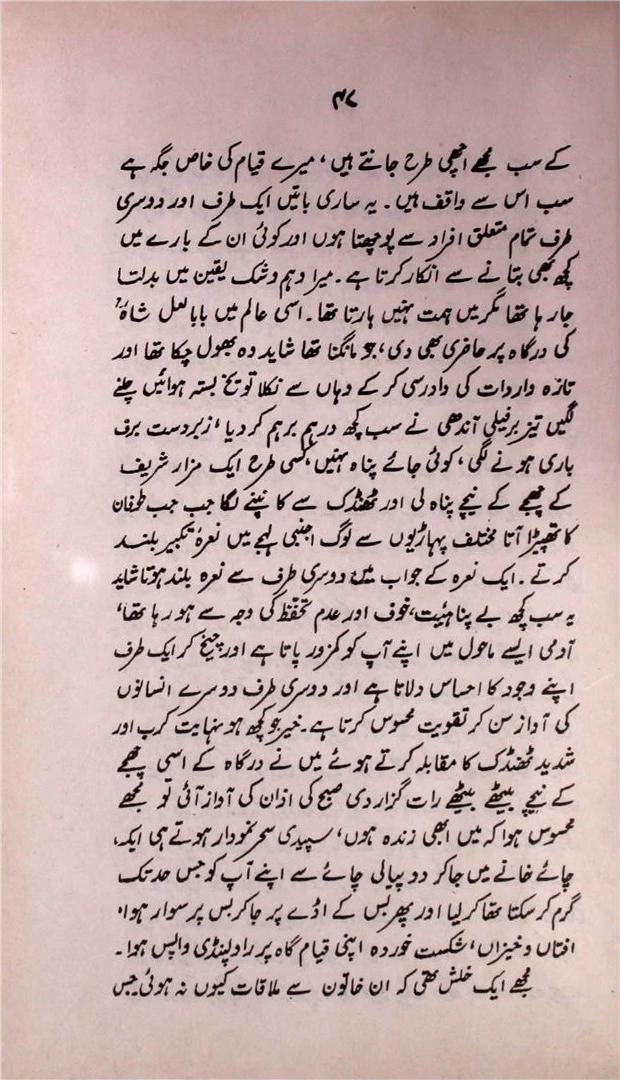 ۴۷
کے سب مجھے اچھی طرح جانتے ہیں، میرے قیام کی خاص جگہ ہے
سب اس سے واقف ہیں۔ یہ ساری باتیں ایک طرف اور دوسری
طرف تمام متعلق افراد سے پوچھتا ہوں اور کوئی ان کے بارے میں
کچھ بھی بتانے سے انکار کرتا ہے۔ میرا وہم و شک یقین میں بدلتا
جا رہا تھا مگر میں ہمت نہیں ہارتا تھا۔ اسی عالم میں بابا لعل شاہؒ
کی درگاہ پر حاضری بھی دی، جو مانگنا تھا شاید وہ بھول چکا تھا اور
تازہ واردات کی دادرسی کر کے وہاں سے نکلا تو یخ بستہ ہوائیں چلنے
لگیں تیز برفیلی آندھی نے سب کچھ درہم برہم کر دیا، زبردست برف
باری ہونے لگی، کوئی جائے پناہ نہیں، کسی طرح ایک مزار شریف
کے چھجے کے نیچے پناہ لی اور ٹھنڈک سے کانپنے لگا جب جب طوفان
کا تھپیڑا آتا مختلف پہاڑیوں سے لوگ اجنبی لہجے میں نعرۂ تکبیر بلند
کرتے۔ ایک نعرہ کے جواب میں دوسری طرف سے نعرہ بلند ہوتا شاید
یہ سب کچھ بے پناہ ہیئت، خوف اور عدم تحفظ کی وجہ سے ہو رہا تھا،
آدمی ایسے ماحول میں اپنے آپ کو کمزور پاتا ہے اور چیخ کر ایک طرف
اپنے وجود کا احساس دلاتا ہے اور دوسری طرف دوسرے انسانوں
کی آواز سن کر تقویت محسوس کرتا ہے۔ خیر جو کچھ ہو نہایت کرب اور
شدید ٹھنڈک کا مقابلہ کرتے ہوئے میں نے درگاہ کے اسی چھجے
کے نیچے بیٹھے بیٹھے رات گزار دی صبح کی اذان کی آواز آئی تو مجھے
محسوس ہوا کہ میں ابھی زندہ ہوں، سپیدی سحر نمودار ہوتے ہی ایک
چائے خانے میں جا کر دو پیالی چائے سے اپنے آپ کو جس حد تک
گرم کر سکتا تھا کر لیا اور پھر بس کے اڈے پر جا کر بس پر سوار ہوا۔
افتاں و خیزاں، شکست خوردہ اپنی قیام گاہ پر راولپنڈی واپس ہوا۔
مجھے ایک خلش تھی کہ ان خاتون سے ملاقات کیوں نہ ہوئی جس